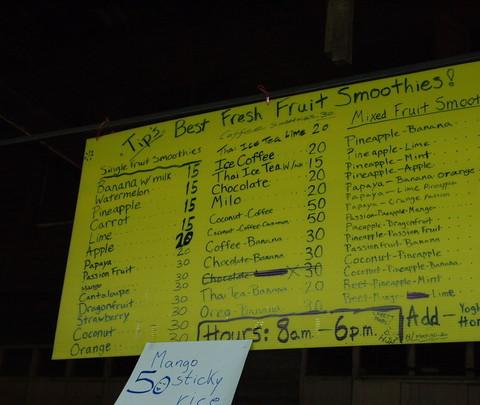 Tip's Best Fresh Fruit Smoothies!
Single fruit Smoothies
Banana w/ milk 15
Watermelon 15
Pineapple 15
Carrot 15
Lime 15
Apple 20
Papaya 30
Passion Fruit 30
Mango 30
Cantaloupe 30
Dragonfruit 30
Strawberry 30
Coconut 30
Orange 30
Coffee Smoothies 30
Thai Ice Tea Lime 20
Ice Coffee 20
Thai Ice Tea w/ 15
Chocolate 20
Milo 20
Coconut-Coffee 50
Coconut-Coffee-Banana 50
Coffee-Banana 30
Chocolate-Banana 30
Chocolate 30
Thai tea-Banana 20
Oreo-Banana 30
Hours: 8am-6pm.
Mixed Fruit Smoot
Pineapple-Banana
Pineapple-Lime
Pineapple-Mint
Pineapple-Apple
Papaya-Banana Orange
Papaya-Lime Pineapple
Papaya-Orange Passion
Passion-Pineapple-Mango
Pineapple-Dragonfruit
Pineapple-Passion Fruit
Passionfruit-Banana
Coconut-Pineapple
Coconut-Pineapple-Banana
Beet-Pineapple-Mint
Beet- Lime
Add - Yogh
Hon
Mango
50 sticky
rice